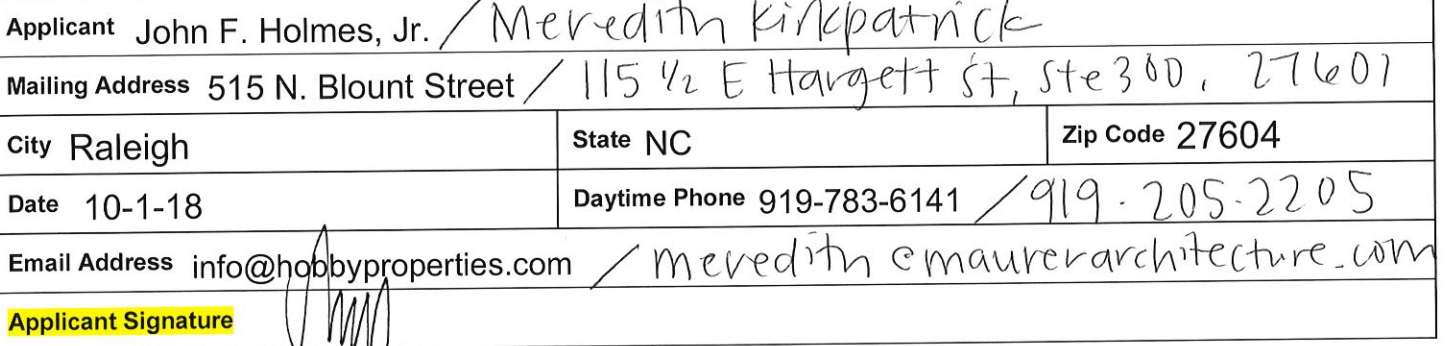 Applicant John F. Holmes, Jr. / Meredith Kirkpatrick
Mailing Address 515 N. Blount Street / 115 1/2 E Hargett St, Ste 300, 27601
City Raleigh State NC Zip Code 27604
Date 10-1-18 Daytime Phone 919-783-6141 / 919.205.2205
Email Address info@hobbyproperties.com / meredith@maurerarchitecture.com
Applicant Signature